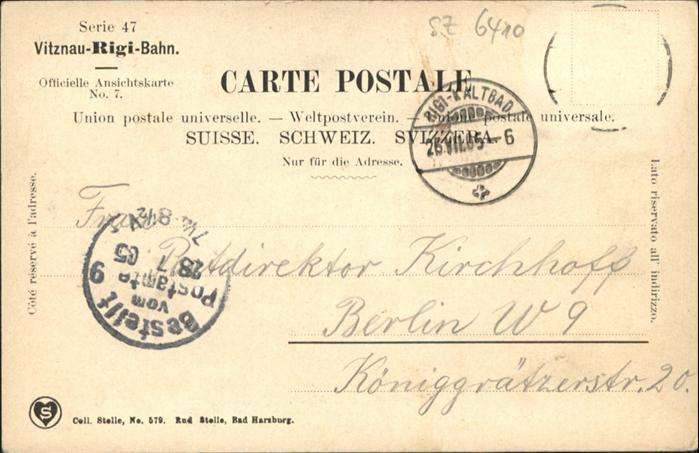 SZ 6410
Serie 47
Vitznau-Rigi-Bahn.
Officielle Ansichtskarte
No. 7.
CARTE POSTALE
Union postale universelle. — Weltpostverein. — Unione postale universale.
SUISSE. SCHWEIZ. SVIZZERA.
Nur für die Adresse.
RIGI-KALTBAD
26.VII.05.-6
Côté reservé à l'adresse.
Lato riservato all' indirizzo.
Frau
Postdirektor Kirchhoff
Berlin W 9
Königgrätzerstr. 20.
Bestellt
vom
Postamte 9
28 7 05
S
Coll. Stolle, No. 579. Rud Stolle, Bad Harzburg.